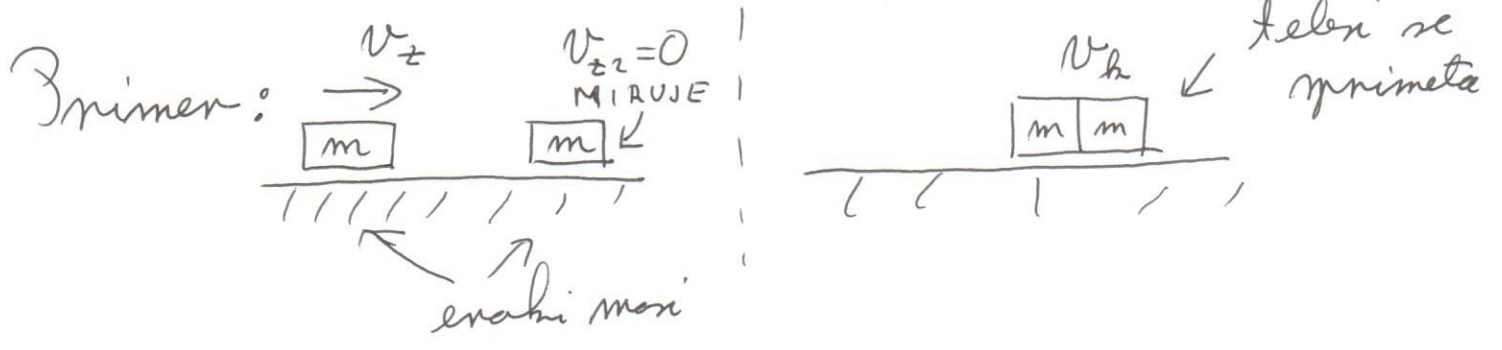 Primer:
v_z
v_z2=0
MIRUJE
m
m
enaki masi
v_k
m m
telesi se
sprimeta